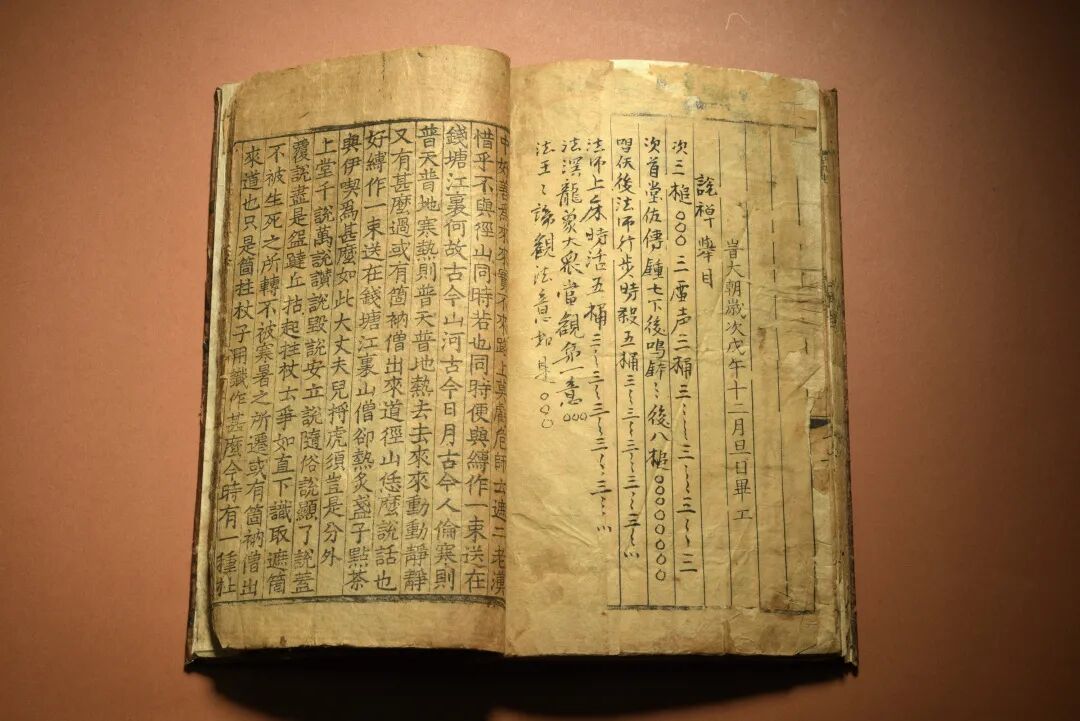 旹大朝歲次戊午十二月旦日畢工
說禪 舉目
次三槌○○○三虛声三桶三〻三〻三〻三
次首堂佐傳鍾七下後鳴鈸〻後八槌○○○○○○○○
後法師行步時殺五桶三〻三〻三〻三〻三〻
法師上床時活五桶三〻三〻三〻三〻三〻
法筵龍象大衆當觀第一意○○○
法王〻諦觀法意如是○○○
來實不來路上莫 師云遮二老漢
惜乎不與徑山同時若也同時便與縛作一束送在
錢塘江裏何故古今山河古今日月古今人倫寒則
普天普地寒熱則普天普地熱去去來來動動靜靜
又有甚麼過或有箇衲僧出來道徑山恁麼說話也
好縛作一束送在錢塘江裏山僧卻熱炙盞子點茶
與伊喫爲甚麼如此大丈夫兒捋虎須豈是分外
上堂千說萬說讚說毀說安立說隨俗說顯了說蓋
覆說盡是盌躂丘拈起拄杖云爭如直下識取遮箇
不被生死之所轉不被寒暑之所遷或有箇衲僧出
來道也只是箇拄杖子用識作甚麼今時有一種杜